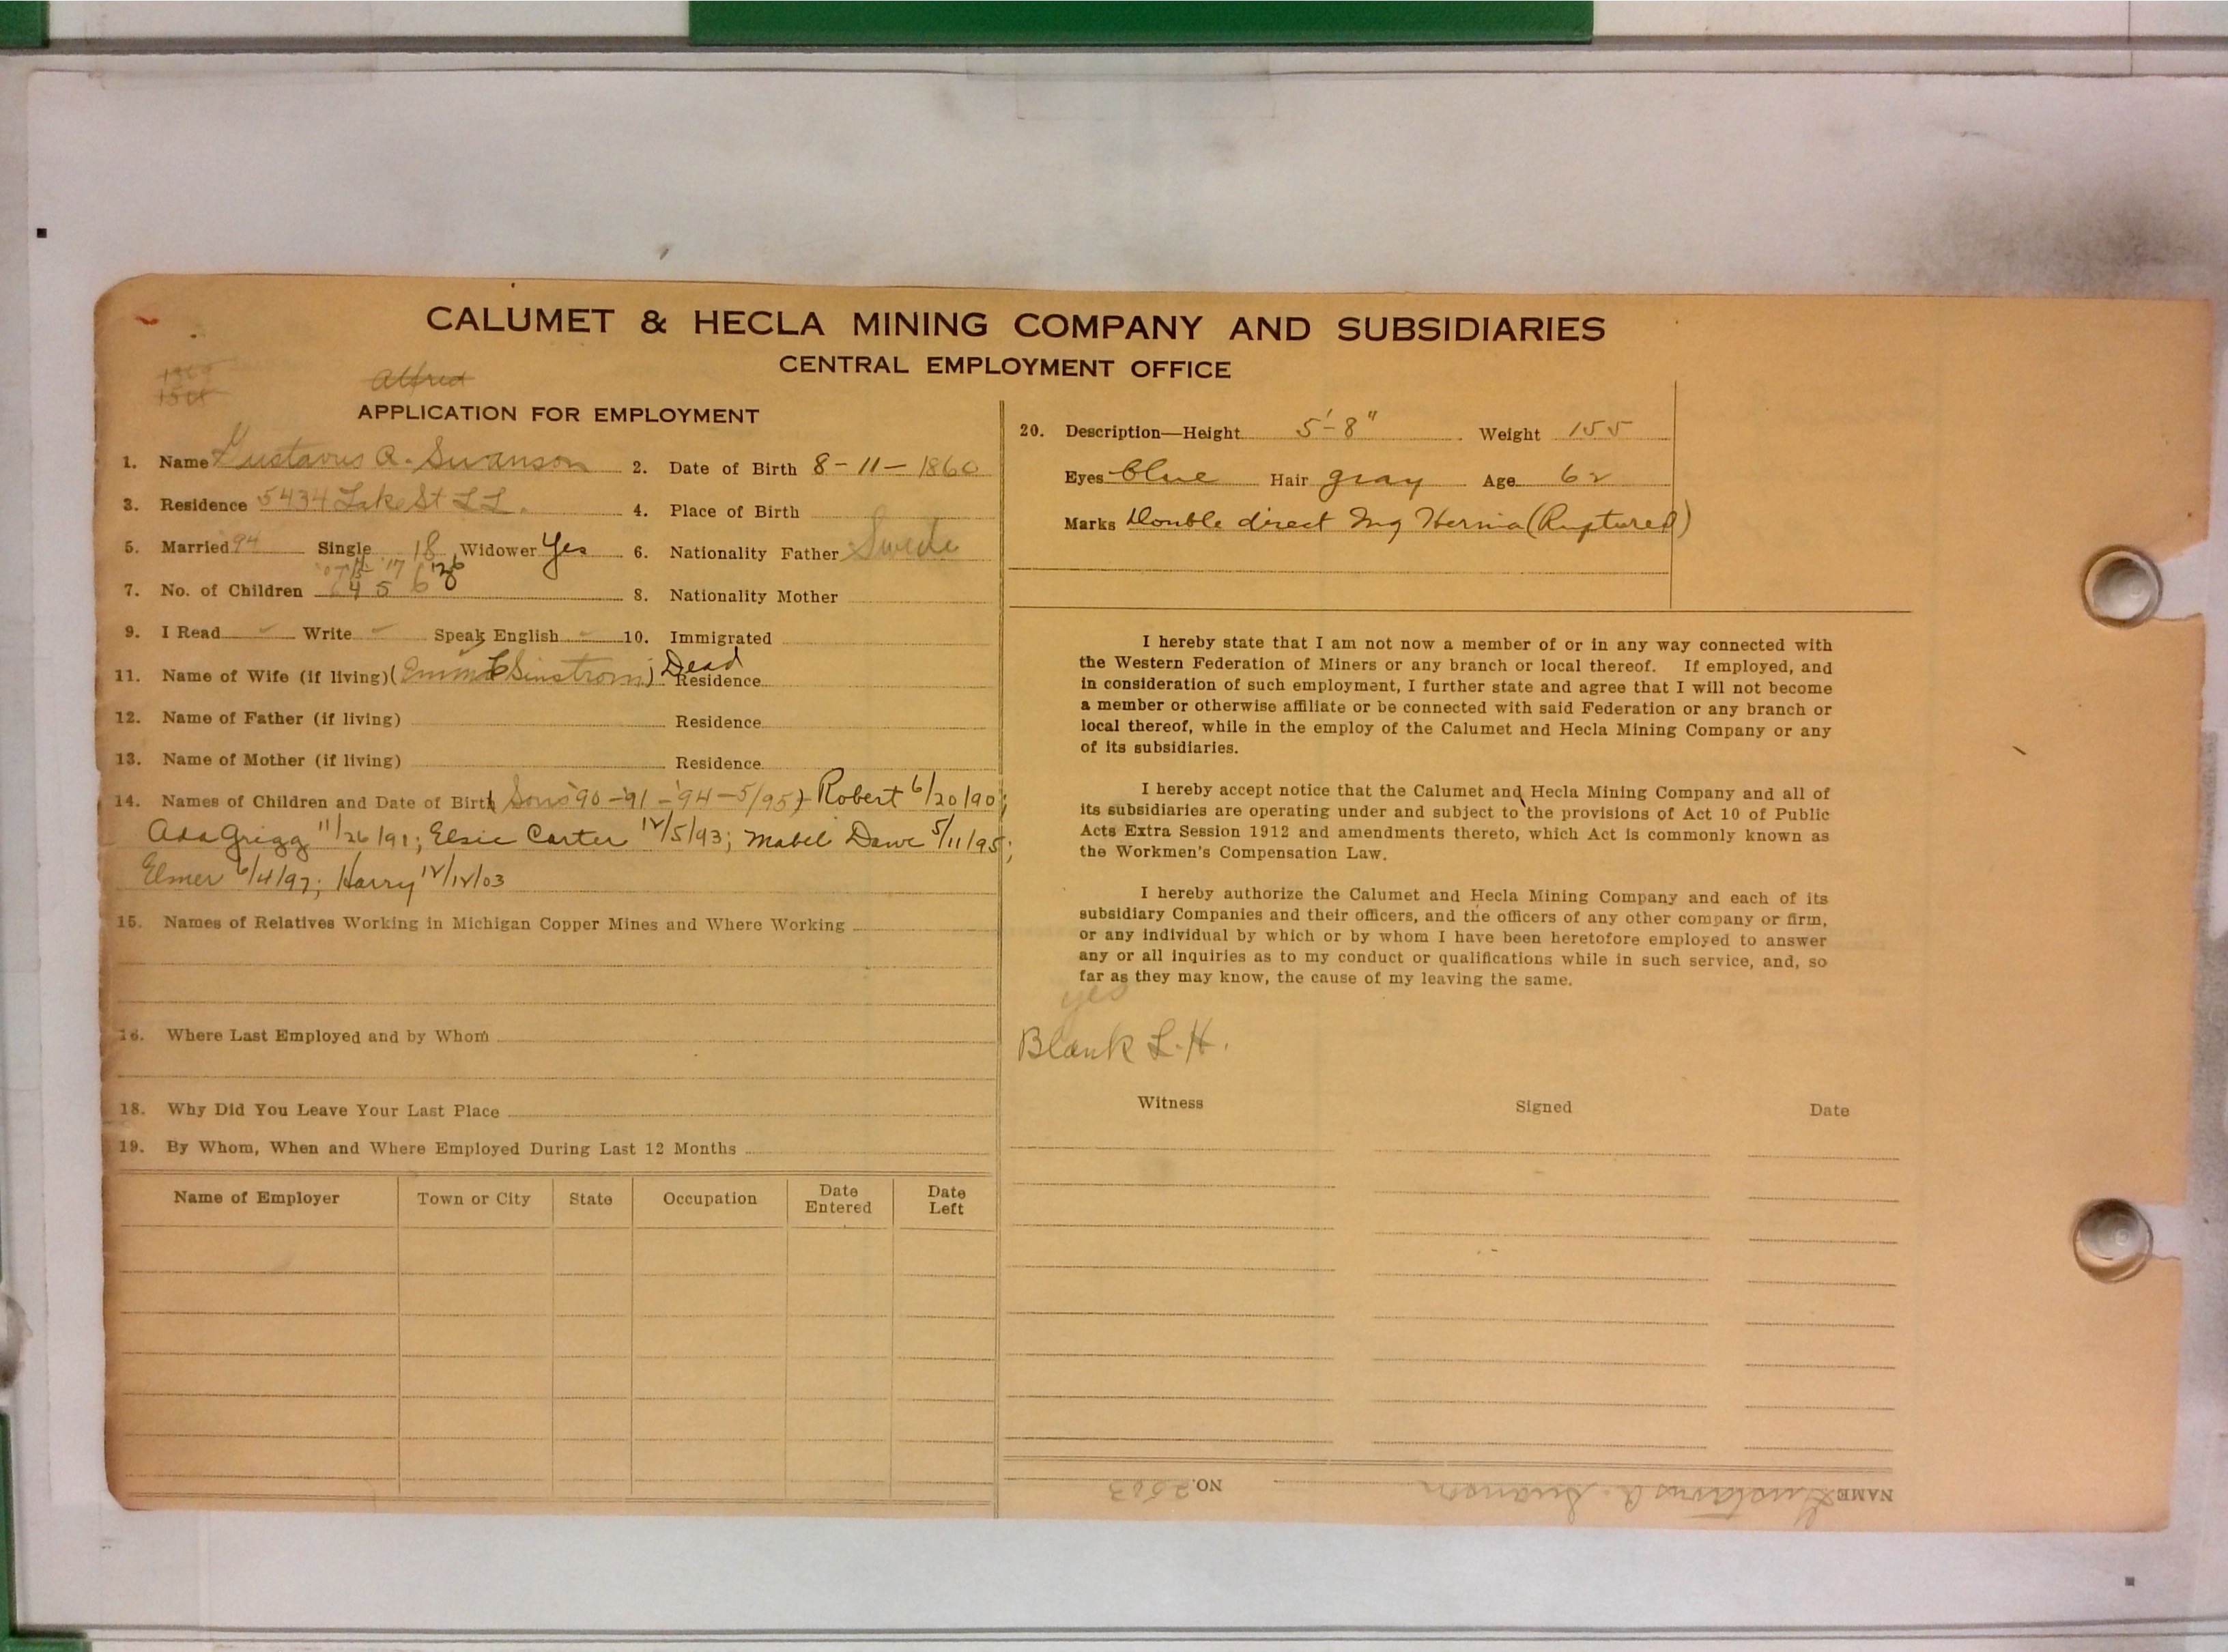 CALUMET & HECLA MINING COMPANY AND SUBSIDIARIES
CENTRAL EMPLOYMENT OFFICE
Alfred
APPLICATION FOR EMPLOYMENT
1. Name Gustavus A. Swanson 2. Date of Birth 8-11-1860
3. Residence 5434 Lake St L L. 4. Place of Birth
5. Married 94 Single 18 Widower Yes 6. Nationality Father Swede
7. No. of Children 4 5 6 8. Nationality Mother
9. I Read ✓ Write ✓ Speak English ✓ 10. Immigrated
11. Name of Wife (if living) (Emma ) Dead Residence
12. Name of Father (if living) Residence
13. Name of Mother (if living) Residence
14. Names of Children and Date of Birth (Sons '90-'91-'94-5/95) Robert 6/20/90;
Ada Grigg 11/26/91; Elsie Carter 12/5/93; Mabel Dawe 5/11/95;
Elmer 6/4/97; Harry 12/12/03
15. Names of Relatives Working in Michigan Copper Mines and Where Working
16. Where Last Employed and by Whom
18. Why Did You Leave Your Last Place
19. By Whom, When and Where Employed During Last 12 Months
Name of Employer Town or City State Occupation Date Entered Date Left
20. Description—Height 5'-8" Weight 155
Eyes blue Hair gray Age 62
Marks Double direct Ing Hernia (Ruptured)
I hereby state that I am not now a member of or in any way connected with
the Western Federation of Miners or any branch or local thereof. If employed, and
in consideration of such employment, I further state and agree that I will not become
a member or otherwise affiliate or be connected with said Federation or any branch or
local thereof, while in the employ of the Calumet and Hecla Mining Company or any
of its subsidiaries.
I hereby accept notice that the Calumet and Hecla Mining Company and all of
its subsidiaries are operating under and subject to the provisions of Act 10 of Public
Acts Extra Session 1912 and amendments thereto, which Act is commonly known as
the Workmen's Compensation Law.
I hereby authorize the Calumet and Hecla Mining Company and each of its
subsidiary Companies and their officers, and the officers of any other company or firm,
or any individual by which or by whom I have been heretofore employed to answer
any or all inquiries as to my conduct or qualifications while in such service, and, so
far as they may know, the cause of my leaving the same.
yes
Blank L.H.
Witness Signed Date
NAME Gustavus A. Swanson NO. 2503